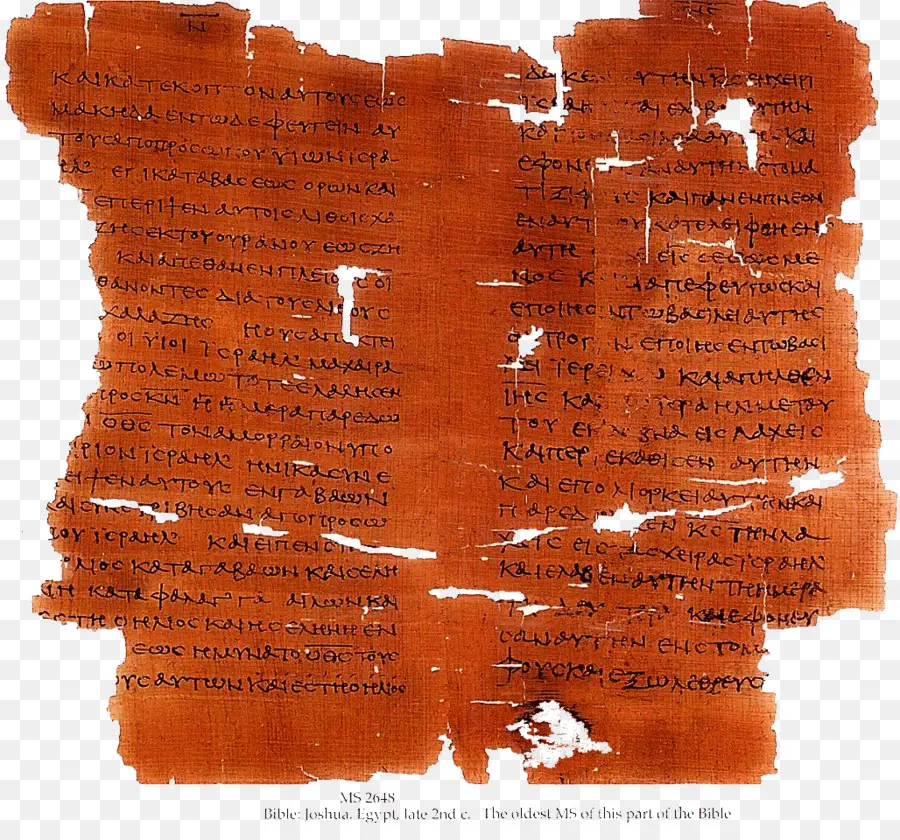 Ν
ΚΑΙΚΑΤΕΚΟΠΤΟΝΑΥΤΟΥϹΕΩϹ
ΜΑΚΗΔΑ ΕΝΤΩΔΕΦΕΥΓΕΙΝ ΑΥ
ΤΟΥϹΑΠΟΠΡΟϹΩΠΟΥΥΙΩΝΙϹΡΑ
ΗΛ ΕΠΙΚΑΤΑΒΑϹΕΩϹ ΟΡΩΝΚΑΙ
ΕΠΕΡΙΨΕΝΑΥΤΟΙϹΛΙΘΟΙϹΧΑ
ΖΗϹΕΚΤΟΥΟΥΡΑΝΟΥ ΕΩϹΖΗ
ΚΑΙΑΠΕΘΑΝΕΝΠΛΕΙΟΥϹΟΙ
ΘΑΝΟΝΤΕϹ ΔΙΑΤΟΥϹΛΙΘΟΥϹ
ΧΑΛΑΖΗϹ ΗΟΥϹΑΠ ΚΤΕΙ
ΟΙ ΥΙΟΙ ΙϹΡΑΗΛ ΜΑΧΑΙΡΑ
ΩΠΟΛΕΜΩ ΤΟΤΕΕΛΑΛΗϹΕΝ
ΠΡΟϹΚΝ Η ΗΜΕΡΑΠΑΡΕΔΩ
ΟΘϹ ΤΟΝΑΜΟΡΡΑΙΟΝΥΠΟ
ΡΙΟΝΙϹΡΑΗΛ ΗΝΙΚΑϹΥΝΕ
ΕΙΨΕΝΑΥΤΟΥϹ ΕΝΓΑΒΑΩΝ
ΤΡΙΒΗϹΑΝ ΑΠΟΠΡΟϹΩ
ΙΟΥΙϹΡΑΗΛ ΚΑΙΕΙΠΕΝΙϹ
ΛΙΟϹ ΚΑΤΑΓΑΒΑΩΝ ΚΑΙϹΕΛΗ
ΚΑΤΑΦΑΛΑΓΓΑ ΑΙΛΩΝΚΑΙ
ϹΤΗΟΗΛΙΟϹΚΑΙΗϹΕΛΗΝΗΕΝ
ΕΩϹΗΜΥΝΑΤΟΟΘϹΤΟΥϹ
ΟΥϹΑΥΤΩΝΚΑΙΕϹΤΗΟΗΛΙΟϹ
ΔΩΚΕΝ ΑΥΤΗΝΚϹΕΝΧΕΙΡΙ
ΙϹΡΑΗ ΚΑΙ ΕΛΑΒΑΥΤΗΝ
ΚΑΙ
ΕΦΟΝΕΥ ΑΝΑΥΤΗΝϹΤΟΜΑ
ΤΙΞΙΦ ΚΑΙΠΑΝΕΝΠΝΕΟΝ
ΕΝΑΥΤ ΟΥΚΑΤΕΛΕΙΦΘΗΕΝ
ΑΥΤΗ ΕΙϹ ΕϹΩϹΜΕ
ΝΟϹ Κ ΔΙΑΠΕΦΕΥΓΩϹΚΑΙ
ΕΠΟΙΗϹΕΝΤΩΒΑϹΙΛΕΙΑΥΤΗϹ
Ο ΤΡΟΠ Ν ΕΠΟΙΗϹΕΝΤΩΒΑϹΙ
ΕΙ ΙΕΡΕΙΧΩ ΚΑΙΑΠΗΛΘΕΝ
ΙΗϹ ΚΑΙ ΙϹΡΑΗΛΜΕΤΟΥ
ΤΟΥ ΕΚ ΕΙϹ ΛΑΧΕΙϹ
ΚΑΙΠΕΡΙΕΚΑΘΙϹΕΝ ΑΥΤΗΝ
ΚΑΙ ΕΠΟΛΙΟΡΚΕΙΑΥΤΗΝΚΑΙ
ΠΑΡΕΔ ΚΕΝ ΚϹΤΗΝΛΑ
ΧΕΙϹ ΕΙϹ ΧΕΙΡΑϹΙϹΡΑΗΛ
ΚΑΙΕΛΑΒΕΝΑΥΤΗΝΤΗΗΜΕΡΑ
ΚΑΙΕΦΟΝΕΥ
ϹΑΝΑΥΤΗΝ ΕΝϹΤΟΜ
ΦΟΥϹΚΑΙΕΞΩΛΕΘΡΕΥϹ
MS 2648
Bible: Joshua. Egypt, late 2nd c. The oldest MS of this part of the Bible